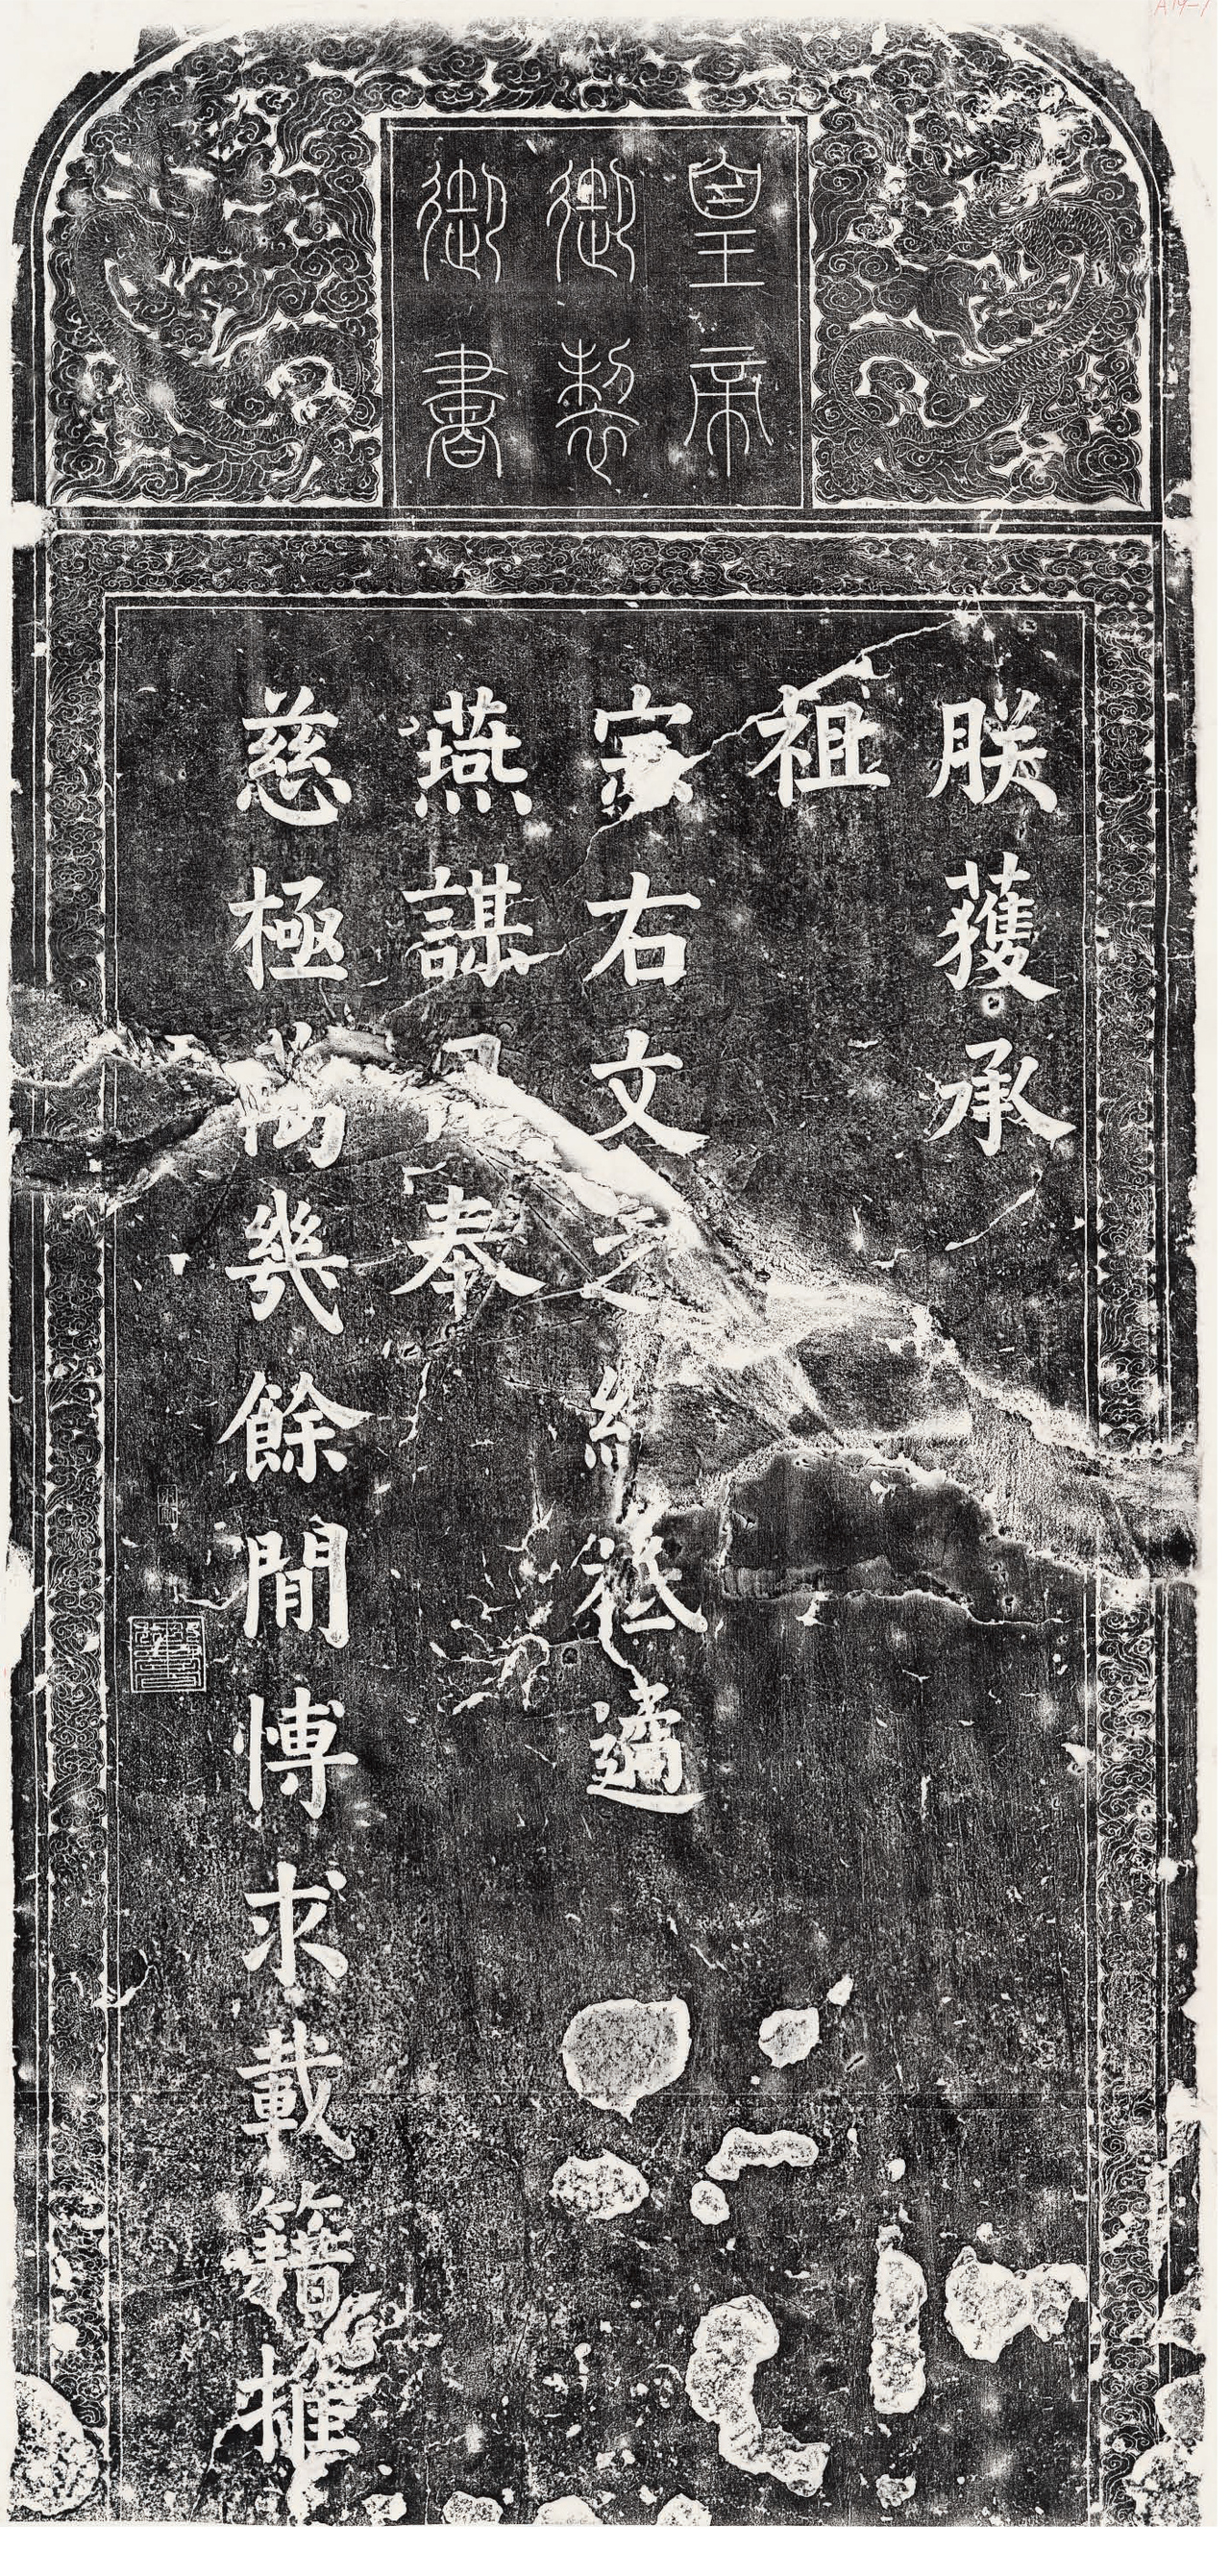 皇帝
御製
御書
朕獲承
祖
宗右文之緒祗遹
燕謀日奉
慈極萬幾餘閒博求載籍推